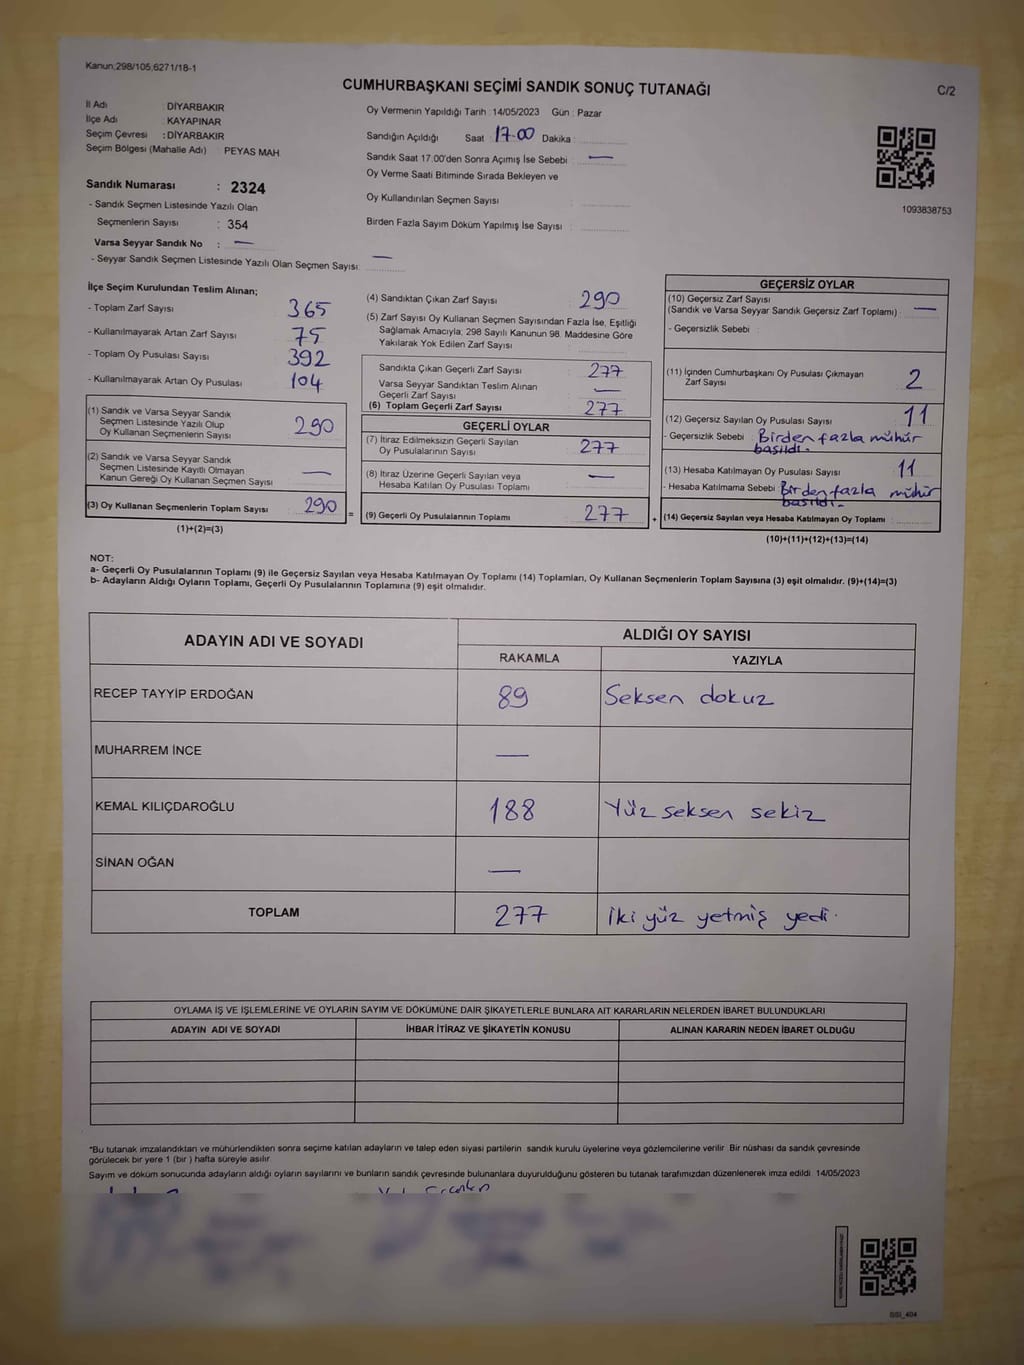 Kanun;298/105,6271/18-1
CUMHURBAŞKANI SEÇİMİ SANDIK SONUÇ TUTANAĞI
C/2
İl Adı : DİYARBAKIR
İlçe Adı : KAYAPINAR
Seçim Çevresi : DİYARBAKIR
Seçim Bölgesi (Mahalle Adı) : PEYAS MAH
Oy Vermenin Yapıldığı Tarih : 14/05/2023 Gün : Pazar
Sandığın Açıldığı Saat 17.00 Dakika :
Sandık Saat 17.00'den Sonra Açımış İse Sebebi : —
Oy Verme Saati Bitiminde Sırada Bekleyen ve
Oy Kullandırılan Seçmen Sayısı :
Birden Fazla Sayım Döküm Yapılmış İse Sayısı :
1093838753
Sandık Numarası : 2324
- Sandık Seçmen Listesinde Yazılı Olan
Seçmenlerin Sayısı : 354
Varsa Seyyar Sandık No : —
- Seyyar Sandık Seçmen Listesinde Yazılı Olan Seçmen Sayısı: —
İlçe Seçim Kurulundan Teslim Alınan;
- Toplam Zarf Sayısı : 365
- Kullanılmayarak Artan Zarf Sayısı : 75
- Toplam Oy Pusulası Sayısı : 392
- Kullanılmayarak Artan Oy Pusulası : 104
(1) Sandık ve Varsa Seyyar Sandık
Seçmen Listesinde Yazılı Olup
Oy Kullanan Seçmenlerin Sayısı : 290
(2) Sandık ve Varsa Seyyar Sandık
Seçmen Listesinde Kayıtlı Olmayan
Kanun Gereği Oy Kullanan Seçmen Sayısı : —
(3) Oy Kullanan Seçmenlerin Toplam Sayısı : 290 =
(1)+(2)=(3)
(4) Sandıktan Çıkan Zarf Sayısı : 290
(5) Zarf Sayısı Oy Kullanan Seçmen Sayısından Fazla İse, Eşitliği
Sağlamak Amacıyla; 298 Sayılı Kanunun 98. Maddesine Göre
Yakılarak Yok Edilen Zarf Sayısı :
Sandıkta Çıkan Geçerli Zarf Sayısı : 277
Varsa Seyyar Sandıktan Teslim Alınan
Geçerli Zarf Sayısı : —
(6) Toplam Geçerli Zarf Sayısı : 277
GEÇERLİ OYLAR
(7) İtiraz Edilmeksizin Geçerli Sayılan
Oy Pusulalarının Sayısı : 277
(8) İtiraz Üzerine Geçerli Sayılan veya
Hesaba Katılan Oy Pusulası Toplamı : —
(9) Geçerli Oy Pusulalarının Toplamı : 277 +
GEÇERSİZ OYLAR
(10) Geçersiz Zarf Sayısı
(Sandık ve Varsa Seyyar Sandık Geçersiz Zarf Toplamı) : —
- Geçersizlik Sebebi :
(11) İçinden Cumhurbaşkanı Oy Pusulası Çıkmayan
Zarf Sayısı : 2
(12) Geçersiz Sayılan Oy Pusulası Sayısı : 11
- Geçersizlik Sebebi : Birden fazla mühür
basıldı.
(13) Hesaba Katılmayan Oy Pusulası Sayısı : 11
- Hesaba Katılmama Sebebi : Birden fazla mühür
basıldı.
(14) Geçersiz Sayılan veya Hesaba Katılmayan Oy Toplamı :
(10)+(11)+(12)+(13)=(14)
NOT:
a- Geçerli Oy Pusulalarının Toplamı (9) ile Geçersiz Sayılan veya Hesaba Katılmayan Oy Toplamı (14) Toplamları, Oy Kullanan Seçmenlerin Toplam Sayısına (3) eşit olmalıdır. (9)+(14)=(3)
b- Adayların Aldığı Oyların Toplamı, Geçerli Oy Pusulalarının Toplamına (9) eşit olmalıdır.
ADAYIN ADI VE SOYADI
ALDIĞI OY SAYISI
RAKAMLA YAZIYLA
RECEP TAYYİP ERDOĞAN 89 Seksen dokuz
MUHARREM İNCE —
KEMAL KILIÇDAROĞLU 188 Yüz seksen sekiz
SİNAN OĞAN —
TOPLAM 277 İki yüz yetmiş yedi.
OYLAMA İŞ VE İŞLEMLERİNE VE OYLARIN SAYIM VE DÖKÜMÜNE DAİR ŞİKAYETLERLE BUNLARA AİT KARARLARIN NELERDEN İBARET BULUNDUKLARI
ADAYIN ADI VE SOYADI İHBAR İTİRAZ VE ŞİKAYETİN KONUSU ALINAN KARARIN NEDEN İBARET OLDUĞU
*Bu tutanak imzalandıktan ve mühürlendikten sonra seçime katılan adayların ve talep eden siyasi partilerin sandık kurulu üyelerine veya gözlemcilerine verilir. Bir nüshası da sandık çevresinde
görülecek bir yere 1 (bir ) hafta süreyle asılır.
Sayım ve döküm sonucunda adayların aldığı oyların sayılarını ve bunların sandık çevresinde bulunanlara duyurulduğunu gösteren bu tutanak tarafımızdan düzenlenerek imza edildi. 14/05/2023